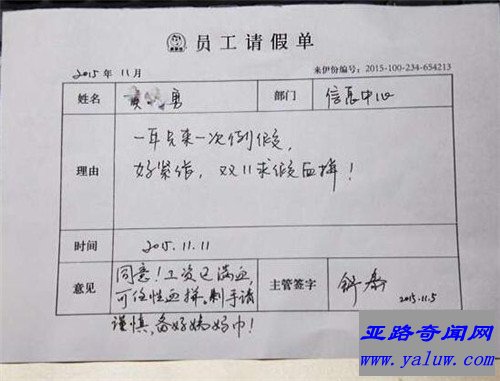 员工请假单
2015年11月
来伊份编号：2015-100-234-654213
姓名 黄 勇 部门 信息中心
理由
一年只来一次例假,
好紧张, 双11求假血拼!
时间 2015.11.11
意见
同意!工资已满血
可任性血拼,剁手请
谨慎,备好妈妈巾!
主管签字
2015.11.5
亚路奇闻网
www.yaluw.com